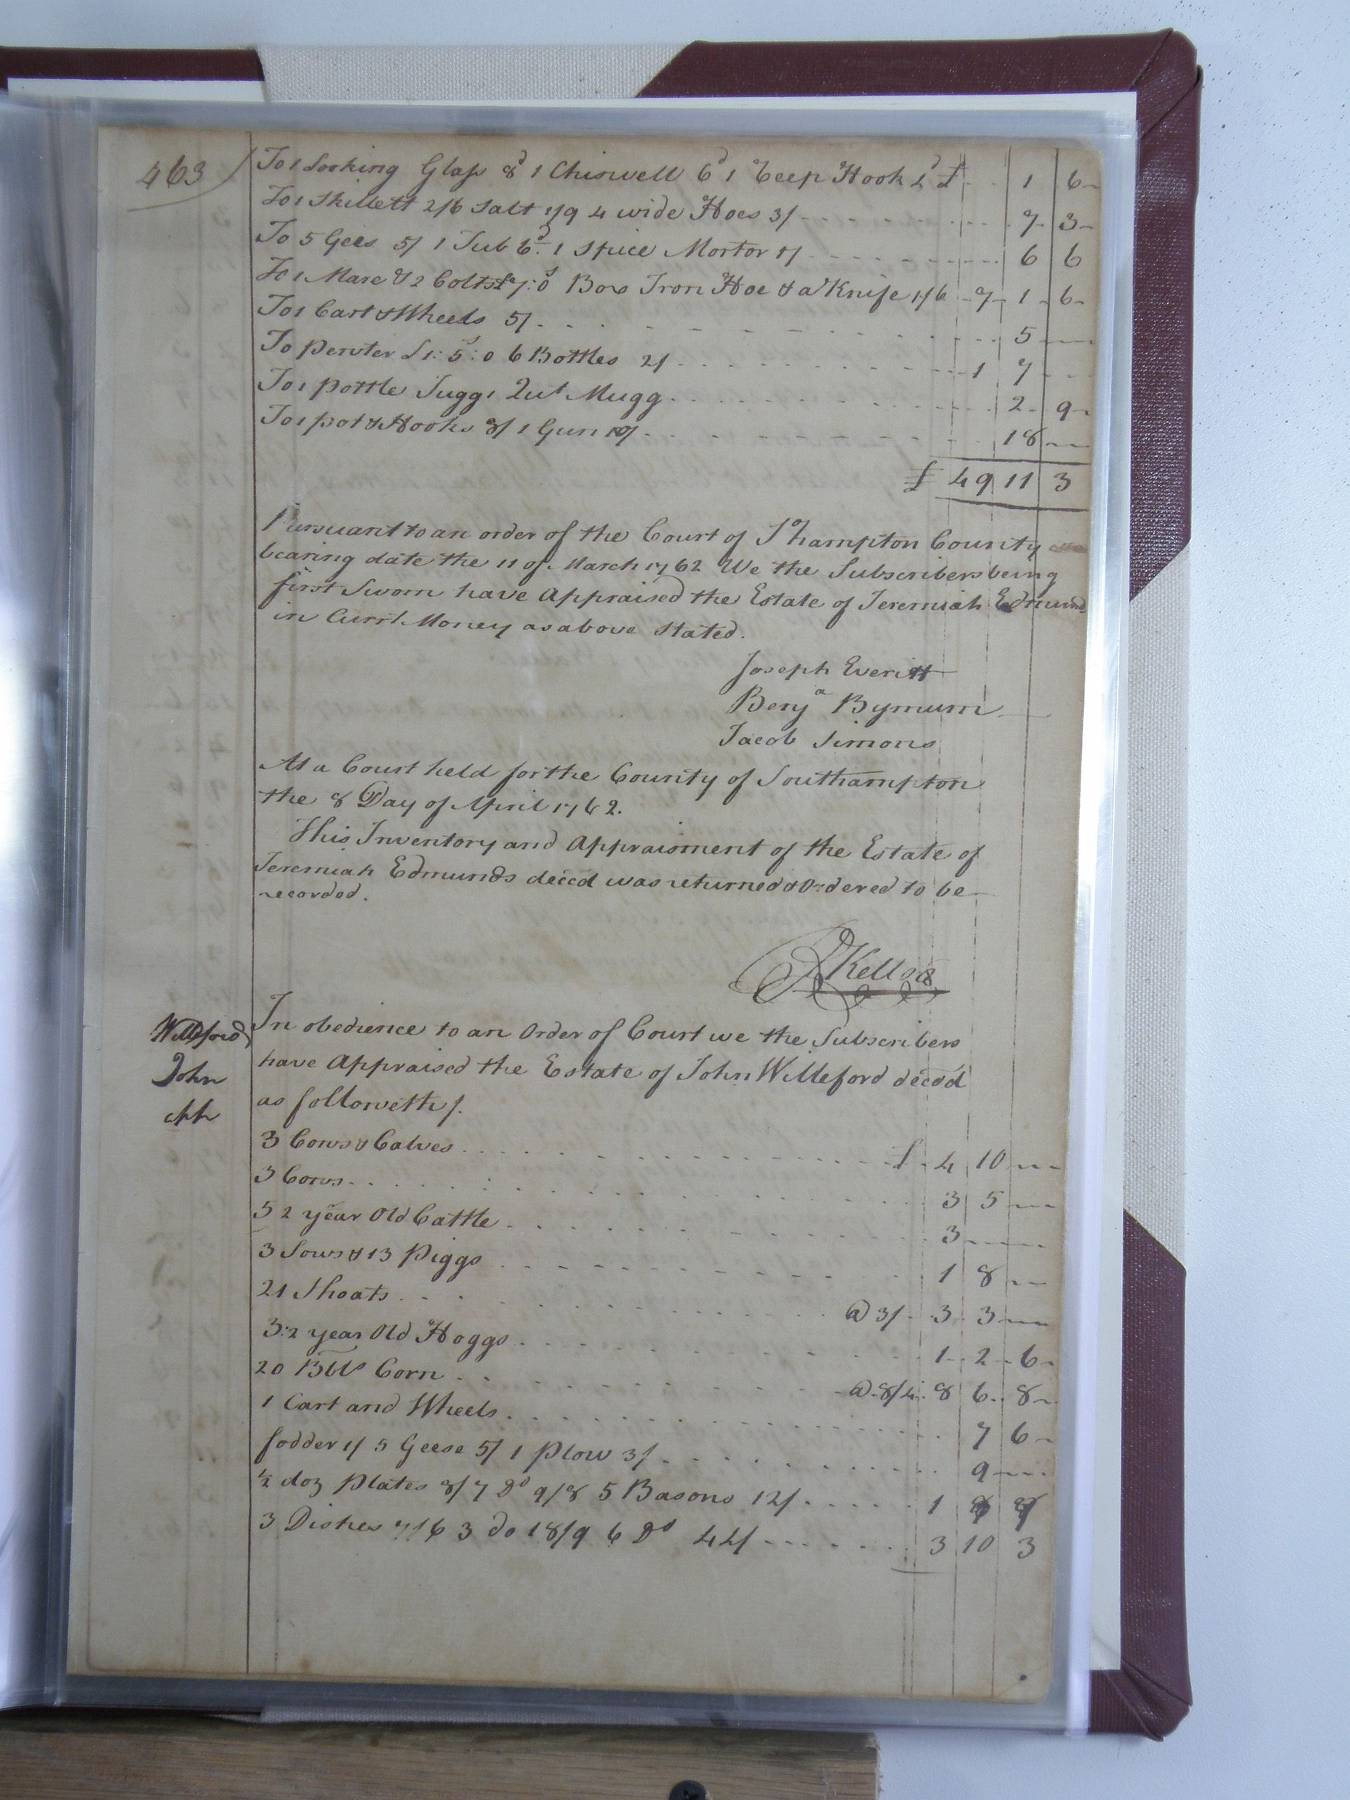 463
To 1 Looking Glass 8d 1 Chiswell 6d 1 Reep Hook 4d £ 1 6
To 1 Skillett 2/6 Salt 1/9 4 wide Hoes 3/ 7 3
To 5 Gees 5/ 1 Tub 6d 1 Spice Mortor 1/ 6 6
To 1 Mare & 2 Colts £7:0 Box Iron Hoe & a Knife 1/6 7 1 6
To 1 Cart & Wheels 5/ 5
To pewter £1:5:0 6 Bottles 2/ 1 7
To 1 pottle Jugg 1 Qut Mugg 2 9
To 1 pot & Hooks 8/ 1 Gun 10/ 18
£ 49 11 3
Pursuant to an order of the Court of So hampton County
bearing date the 11 of March 1762 We the Subscribers being
first Sworn have Appraised the Estate of Jeremiah Edmund
in Currt. Money as above Stated.
Joseph Everitt
Benja Bynum
Jacob Simons
At a Court held for the County of Southampton
the 8 Day of April 1762.
This Inventory and Appraisment of the Estate of
Jeremiah Edmunds decd was returned & Ordered to be
recorded.
R Kello
Willeford
John
In obedience to an Order of Court we the Subscribers
have Appraised the Estate of John Willeford decd
as followeth /.
3 Cows & Calves £ 4 10
3 Cows 3 5
5 2 year Old Cattle 3
3 Sows & 13 Piggs 1 8
21 Shoats @ 3/ 3 3
3:2 year Old Hoggs 1 2 6
20 Bbls Corn @ 8/4 8 6 8
1 Cart and Wheels 7 6
fodder 1/ 5 Geese 5/ 1 plow 3/ 9
½ doz Plates 8/ 7 Do 9/8 5 Basons 12/ 1
3 Dishes 7/6 3 do 18/9 6 Do 44/ 3 10 3